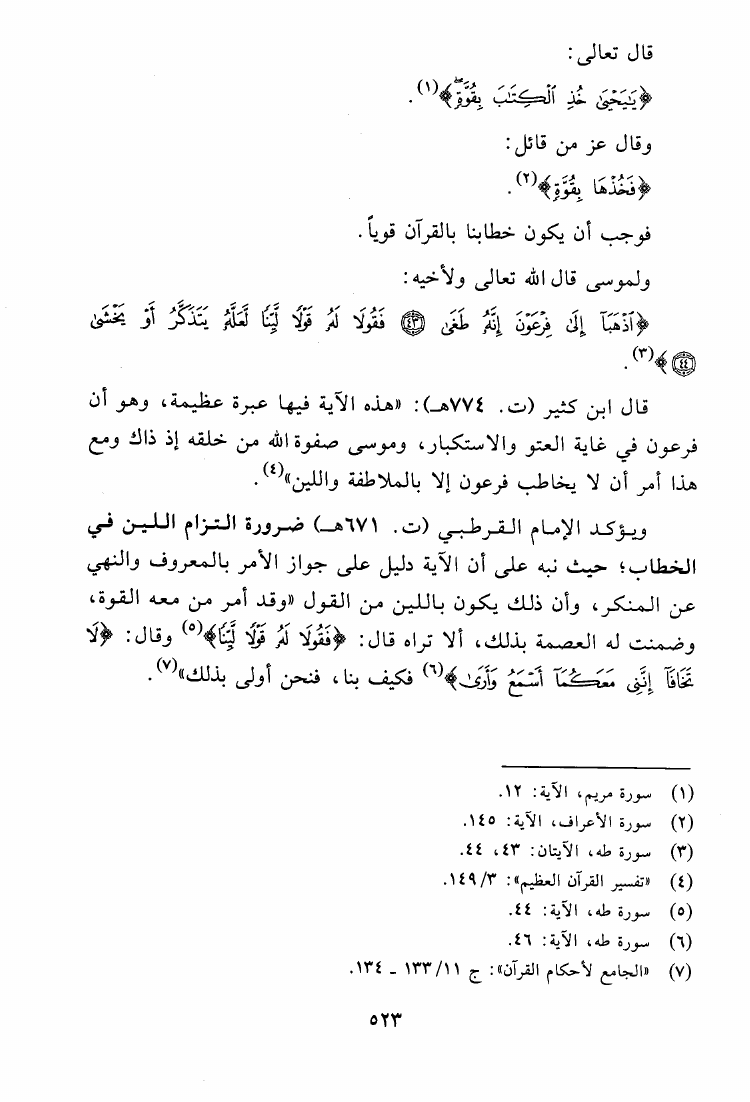 قال تعالى:
﴿يَٰيَحۡيَىٰ خُذِ ٱلۡكِتَٰبَ بِقُوَّةٖۖ﴾(١).
وقال عز من قائل:
﴿فَخُذۡهَا بِقُوَّةٖ﴾(٢).
فوجب أن يكون خطابنا بالقرآن قوياً.
ولموسى قال الله تعالى ولأخيه:
﴿ٱذۡهَبَآ إِلَىٰ فِرۡعَوۡنَ إِنَّهُۥ طَغَىٰ ٤٣ فَقُولَا لَهُۥ قَوۡلٗا لَّيِّنٗا لَّعَلَّهُۥ يَتَذَكَّرُ أَوۡ يَخۡشَىٰ
٤٤﴾(٣).
قال ابن كثير (ت. ٧٧٤هـ): «هذه الآية فيها عبرة عظيمة، وهو أن
فرعون في غاية العتو والاستكبار، وموسى صفوة الله من خلقه إذ ذاك ومع
هذا أمر أن لا يخاطب فرعون إلا بالملاطفة واللين»(٤).
ويؤكد الإمام القرطبي (ت. ٦٧١هـ) ضرورة التزام اللين في
الخطاب؛ حيث نبه على أن الآية دليل على جواز الأمر بالمعروف والنهي
عن المنكر، وأن ذلك يكون باللين من القول «وقد أمر من معه القوة،
وضمنت له العصمة بذلك، ألا تراه قال: ﴿فَقُولَا لَهُۥ قَوۡلٗا لَّيِّنٗا﴾(٥) وقال: ﴿لَا
تَخَافَآ إِنَّنِي مَعَكُمَآ أَسۡمَعُ وَأَرَىٰ﴾(٦) فكيف بنا، فنحن أولى بذلك»(٧).
(١) سورة مريم، الآية: ١٢.
(٢) سورة الأعراف، الآية: ١٤٥.
(٣) سورة طه، الآيتان: ٤٣، ٤٤.
(٤) «تفسير القرآن العظيم»: ١٤٩/٣.
(٥) سورة طه، الآية: ٤٤.
(٦) سورة طه، الآية: ٤٦.
(٧) «الجامع لأحكام القرآن»: ج ١١/ ١٣٣ ـ ١٣٤.
٥٢٣